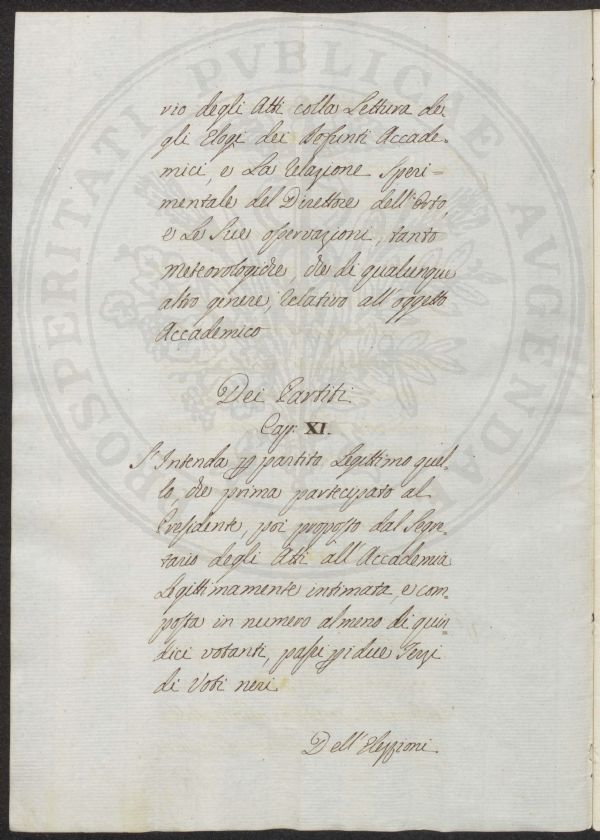 PROSPERITATI PVBLICAE AVGENDAE
vio degli Atti colla Lettura de
gli Elogi dei Defunti Accade-
mici, e La relazione Speri=
mentale del Direttore dell'Orto,
e Le Sue ofservazioni, tanto
meteorologiche, che di qualunque
altro genere, relativo all'oggetto
Accademico
Dei Partiti
Cap. XI.
S'Intenda per partito Legittimo quel-
lo, che prima partecipato al
Presidente, poi proposto dal Segre-
tario degli Atti all'Accademia
Legittimamente intimata, e com-
posta in numero almeno di quin-
dici votanti, passi per i due Terzi
di Voti neri
Dell'Elezzioni